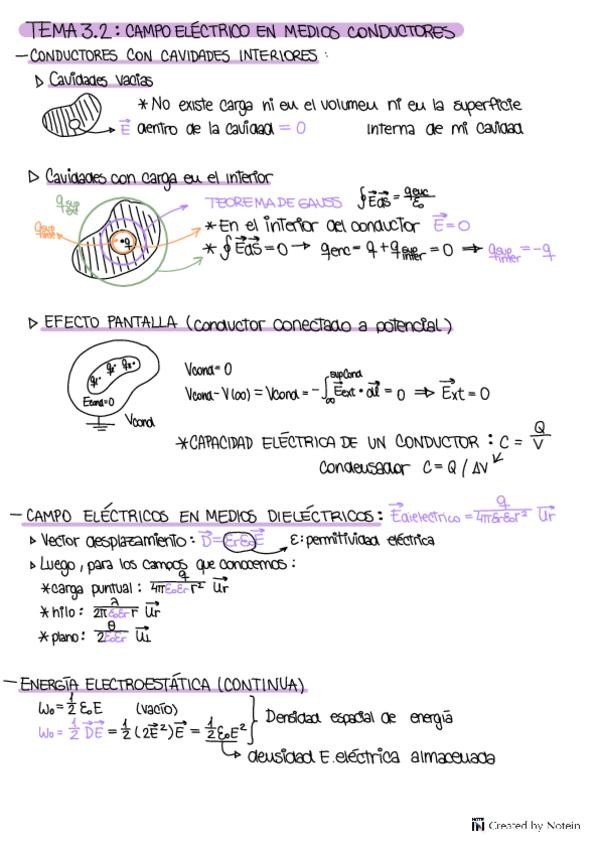 TEMA 3.2: CAMPO ELÉCTRICO EN MEDIOS CONDUCTORES
- CONDUCTORES CON CAVIDADES INTERIORES:
▷ Cavidades vacias
* No existe carga ni en el volumen ni en la superficie
E⃗ dentro de la cavidad = 0 interna de mi cavidad
▷ Cavidades con carga en el interior
q sup ext
TEOREMA DE GAUSS ∮E⃗dS⃗ = qenc/ε₀
q sup inter
* En el interior del conductor E⃗=0
q
* ∮E⃗dS⃗ = 0 → qenc = q + q sup inter = 0 ⇒ q sup inter = -q
▷ EFECTO PANTALLA (conductor conectado a potencial)
q₁· q₂· q₃·
Econd=0
Vcond
Vcond = 0
Vcond - V(∞) = Vcond = - ∫∞^supCond E⃗ext · dl⃗ = 0 ⇒ E⃗xt = 0
* CAPACIDAD ELÉCTRICA DE UN CONDUCTOR: C = Q/V
condensador C = Q/ΔV
- CAMPO ELÉCTRICOS EN MEDIOS DIELÉCTRICOS: E⃗dielectrico = q/4πεrε₀r² U⃗r
▷ Vector desplazamiento: D⃗ = εrε₀E⃗ → ε: permitividad eléctrica
▷ Luego, para los campos que conocemos:
* carga puntual: q/4πε₀εr r² U⃗r
* hilo: λ/2πε₀εr r U⃗r
* plano: θ/2ε₀εr U⃗⊥
- ENERGÍA ELECTROESTÁTICA (CONTINUA)
W₀ = 1/2 ε₀E (vacío)
W₀ = 1/2 D⃗E⃗ = 1/2 (2E⃗²)E⃗ = 1/2 ε₀E² } Densidad espacial de energía
→ densidad E. eléctrica almacenada
NOTE IN Created by Notein